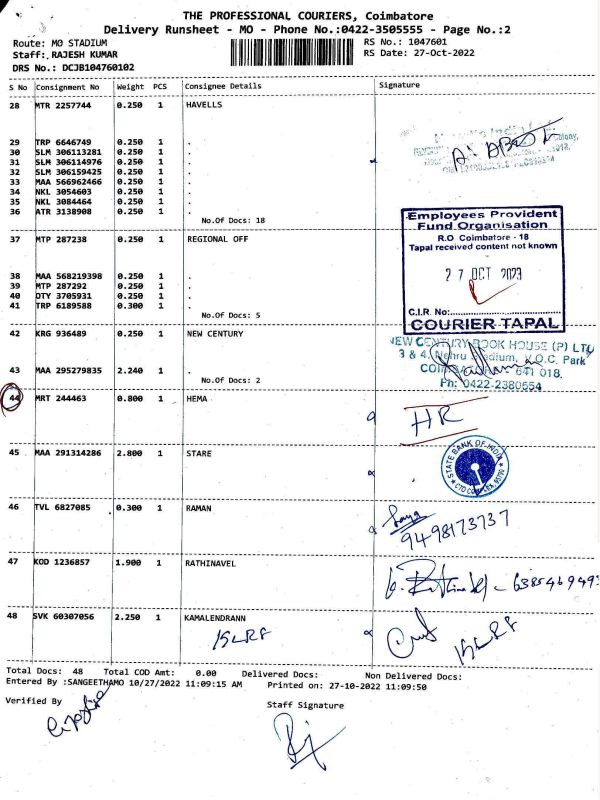 THE PROFESSIONAL COURIERS, Coimbatore
Delivery Runsheet - MO - Phone No.:0422-3505555 - Page No.:2
Route: MO STADIUM
RS No.: 1047601
Staff: RAJESH KUMAR
RS Date: 27-Oct-2022
DRS No.: DCJB104760102
S No Consignment No Weight PCS Consignee Details Signature
28 MTR 2257744 0.250 1 HAVELLS
29 TRP 6646749 0.250 1 .
30 SLM 306113281 0.250 1 .
31 SLM 306114976 0.250 1 .
32 SLM 306159425 0.250 1 .
33 MAA 566962466 0.250 1 .
34 NKL 3054603 0.250 1 .
35 NKL 3084464 0.250 1 .
36 ATR 3138908 0.250 1 .
No.Of Docs: 18
Employees Provident
Fund Organisation
R.O Coimbatore - 18
Tapal received content not known
27 OCT 2023
C.I.R. No:
COURIER TAPAL
37 MTP 287238 0.250 1 REGIONAL OFF
38 MAA 568219398 0.250 1 .
39 MTP 287292 0.250 1 .
40 DTY 3705931 0.250 1 .
41 TRP 6189588 0.300 1 .
No.Of Docs: 5
42 KRG 936489 0.250 1 NEW CENTURY
NEW CENTURY BOOK HOUSE (P) LTD
3 & 4, Nehru Stadium, V.O.C. Park
641 018.
Ph: 0422-2380554
43 MAA 295279835 2.240 1 .
No.Of Docs: 2
44 MRT 244463 0.800 1 HEMA
HR
45 MAA 291314286 2.800 1 STARE
STATE BANK OF INDIA
46 TVL 6827085 0.300 1 RAMAN
9498173737
47 KOD 1236857 1.900 1 RATHINAVEL
48 SVK 60307056 2.250 1 KAMALENDRANN
Total Docs: 48 Total COD Amt: 0.00 Delivered Docs: Non Delivered Docs:
Entered By :SANGEETHAMO 10/27/2022 11:09:15 AM Printed on: 27-10-2022 11:09:50
Verified By
Staff Signature